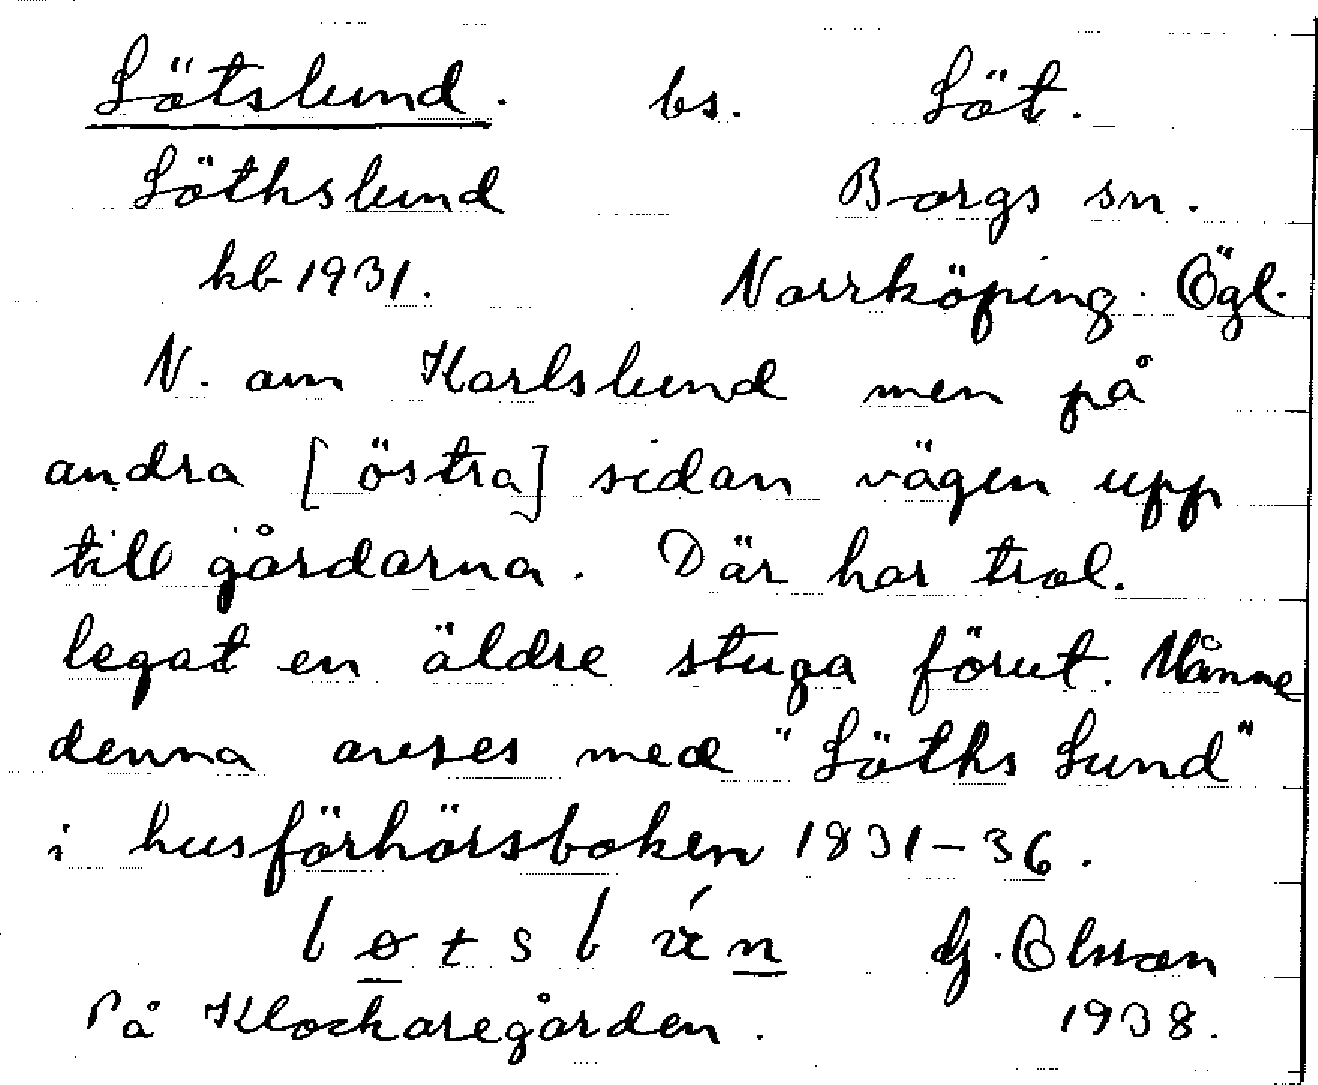 Lötslund. bs. Löt.
Löthslund Borgs sn.
kb 1931. Norrköping. Ögl.
N. om Karlslund men på
andra [östra] sidan vägen upp
till gårdarna. Där har trol.
legat en äldre stuga förut. Månne
denna avses med "Löths Lund"
i husförhörsboken 1831-36.
G. Olsson
På Klockaregården. 1938.